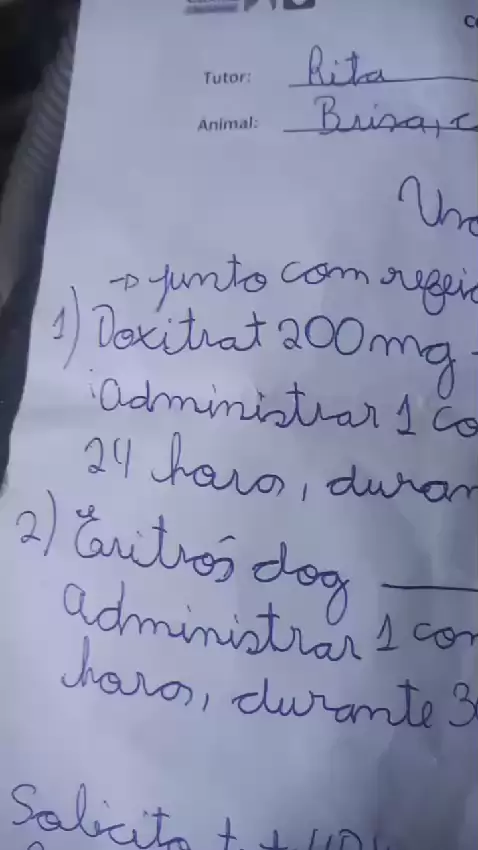 Tutor: Rita
Animal: Brisa, c
Uso
→ junto com refeiç
1) Doxitrat 200mg -
administrar 1 co
24 horas, duran
2) Eritrós dog
administrar 1 com
horas, durante 30
Solicito